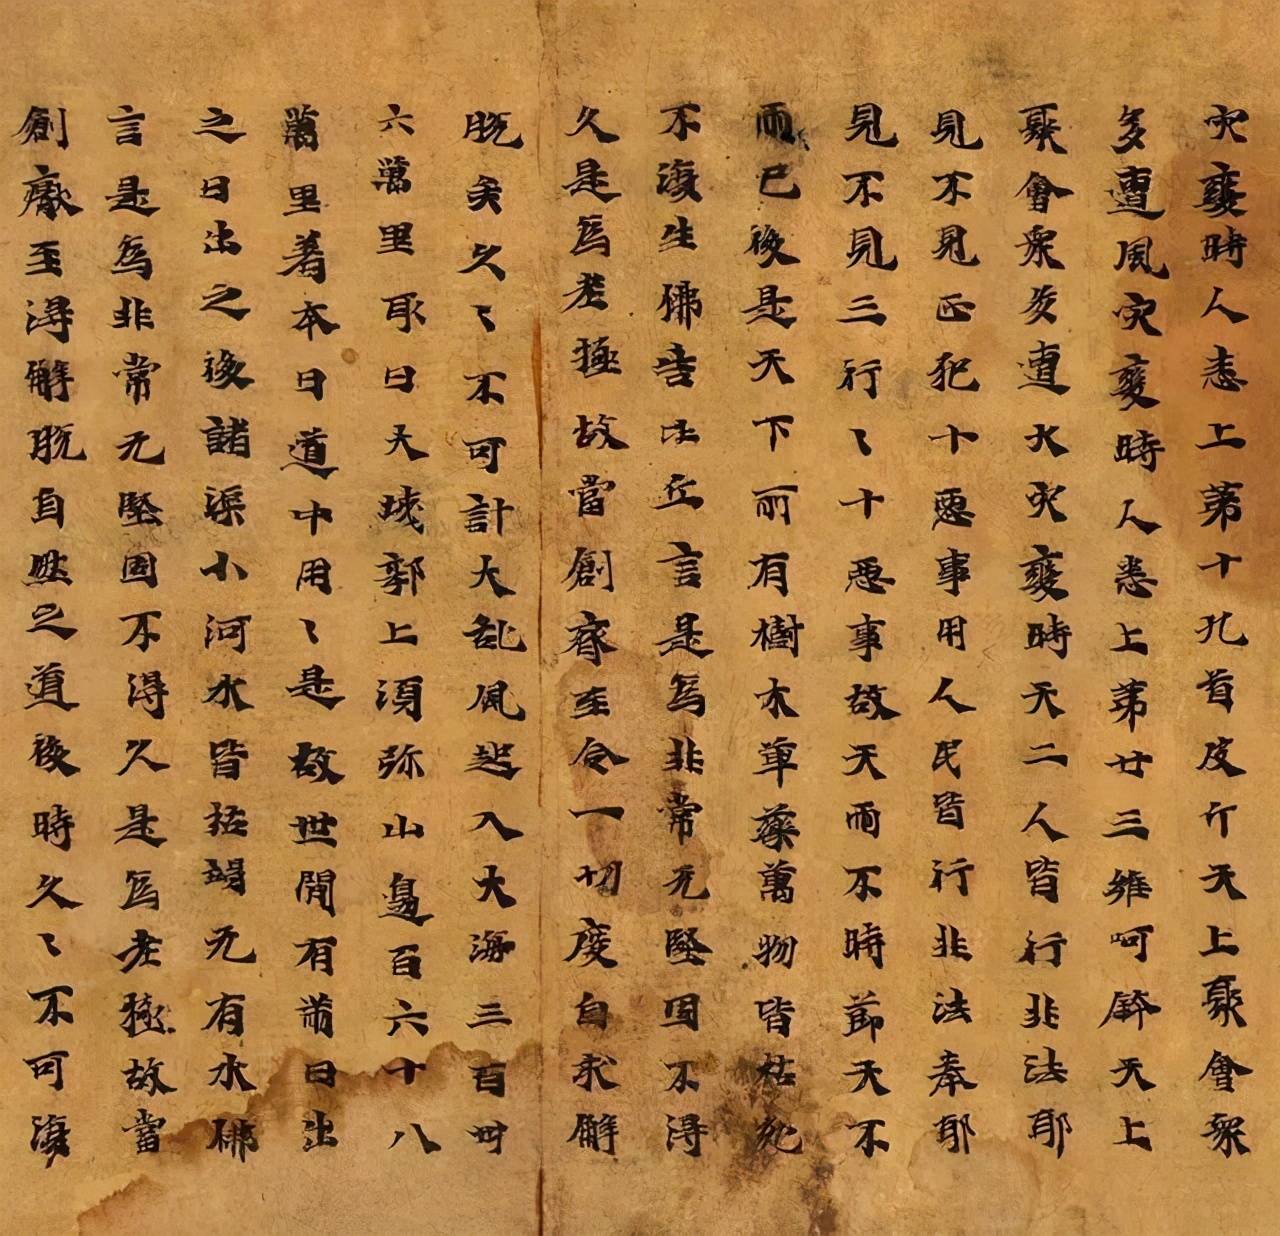 灾變時人悉上第十九首皮斤天上聚會衆
多遭風灾變時人悉上第廿三維呵䤭天上
聚會衆多遭火灾變時天二人皆行非法耶
見不見正犯十惡事用人民皆行非法奉耶
見不見三行〻十惡事故天雨不時節天不
雨已後是天下所有樹木草藥萬物皆枯死
不復生佛告比丘言是爲非常无堅固不得
久是爲老極故當創䜭至令一切度自求解
脱矣久〻不可計大亂風起入大海三百卅
六萬里取日大城郭上須弥山邊百六十八
萬里著本日道中用〻是故世間有兩日出
之日出之後諸渠小河水皆枯竭无有水佛
言是爲非常无堅固不得久是爲老極故當
創癈至得解脱自然之道後時久〻不可復